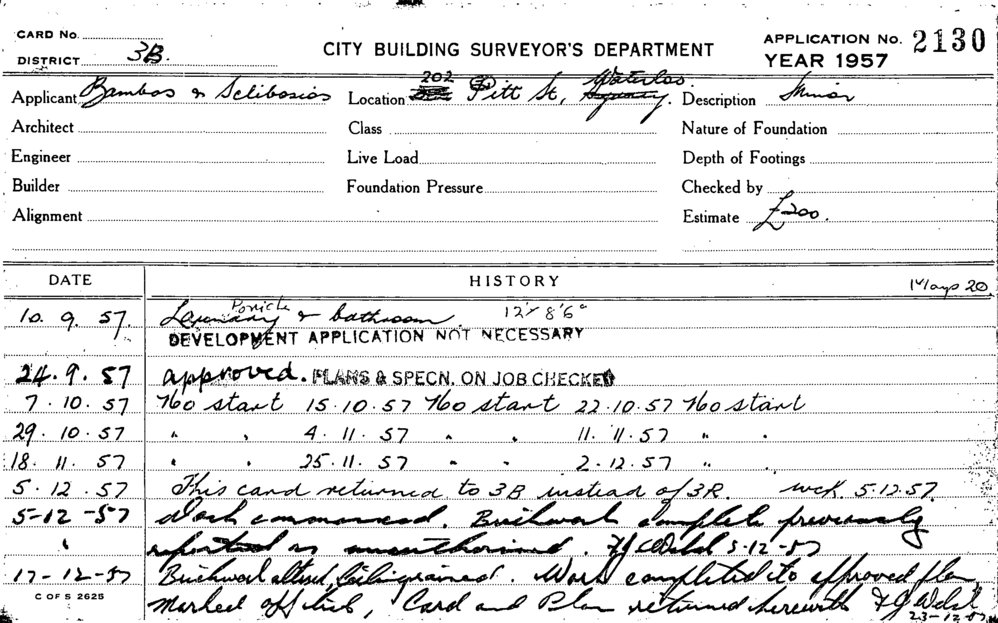 CARD No.
DISTRICT 3B.
CITY BUILDING SURVEYOR'S DEPARTMENT
APPLICATION No. 2130
YEAR 1957
Applicant Bambos & Selibosios Location 202 Pitt St, Waterloo Description Minor
Architect Class Nature of Foundation
Engineer Live Load Depth of Footings
Builder Foundation Pressure Checked by
Alignment Estimate £200.
DATE HISTORY
10. 9. 57. Laundry & bathroom 12' x 8'6"
DEVELOPMENT APPLICATION NOT NECESSARY
24. 9. 57 approved. PLANS & SPECN. ON JOB CHECKED
7. 10. 57 No start 15.10.57 No start 22.10.57 No start
29. 10. 57 " " 4. 11. 57 " " 11. 11. 57 " "
18. 11. 57 " " 25. 11. 57 " " 2. 12. 57 "
5. 12. 57 This card returned to 3B instead of 3R. wck. 5.12.57.
5-12-57 Work commenced. Brickwork complete previously
" reported as unauthorised. F J Welsh 5-12-57
17-12-57 Brickwork altered, Ceiling raised. Work completed to approved plan,
C OF S 2625
Marked off list, Card and Plan returned herewith F J Welsh
23-12-57